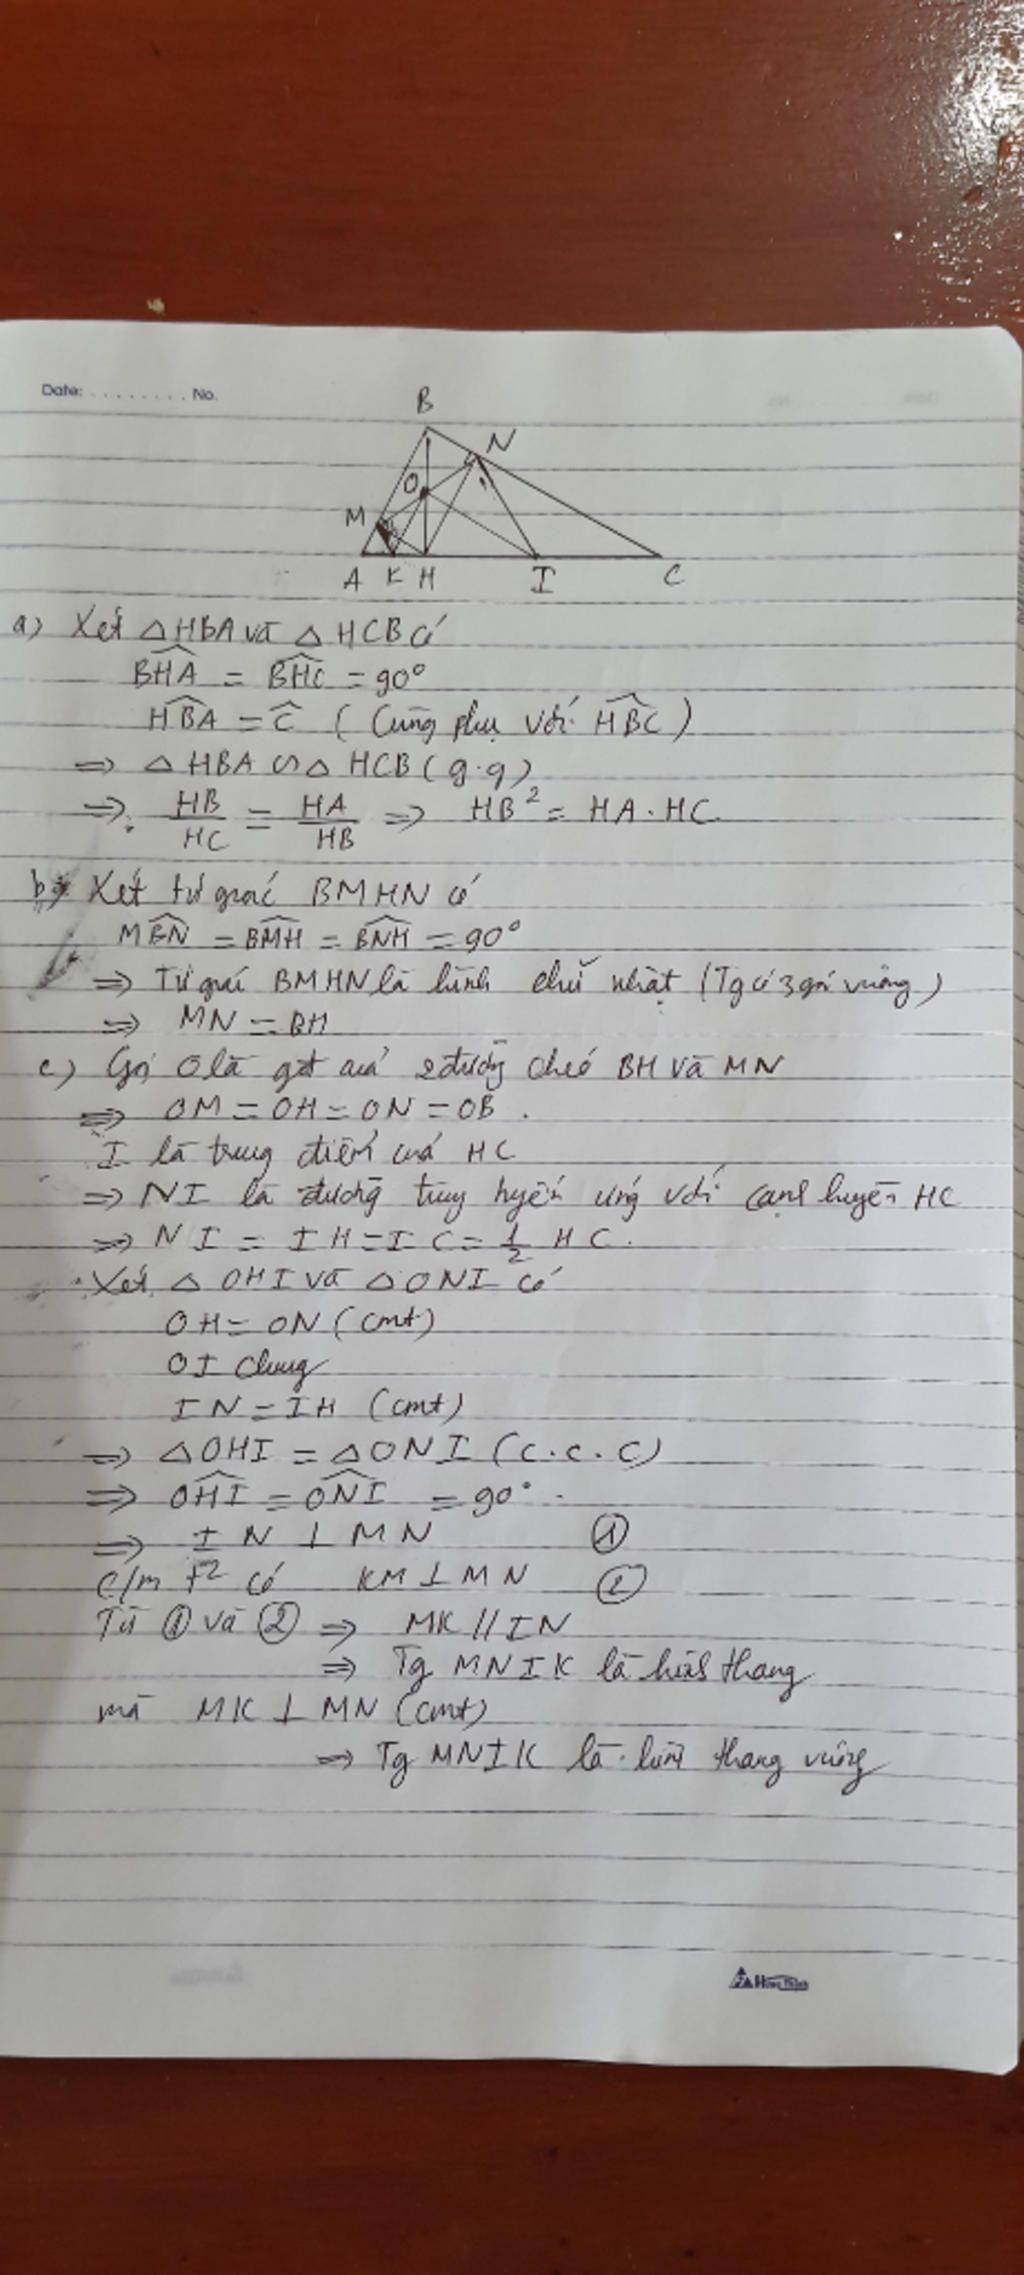 Date: ........ No.
B
N
O
M
A K H I C
a) Xét △HBA và △HCB có
BHA = BHC = 90°
HBA = C (Cùng phụ với HBC)
=> △HBA ∽ △HCB (g.g)
=> HB/HC = HA/HB => HB² = HA.HC
b) Xét tứ giác BMHN có
MBN = BMH = BNH = 90°
=> Tứ giác BMHN là hình chữ nhật (Tg có 3 góc vuông)
=> MN = BH
c) Gọi O là gđ của 2 đường chéo BH và MN
=> OM = OH = ON = OB.
I là trung điểm của HC
=> NI là đường trung tuyến ứng với cạnh huyền HC
=> NI = IH = IC = 1/2 HC.
Xét △OHI và △ONI có
OH = ON (cmt)
OI chung
IN = IH (cmt)
=> △OHI = △ONI (c.c.c)
=> OHI = ONI = 90°.
=> IN ⊥ MN ①
C/m t² có KM ⊥ MN ②
Từ ① và ② => MK // IN
=> Tg MNIK là hình thang
mà MK ⊥ MN (cmt)
=> Tg MNIK là hình thang vuông